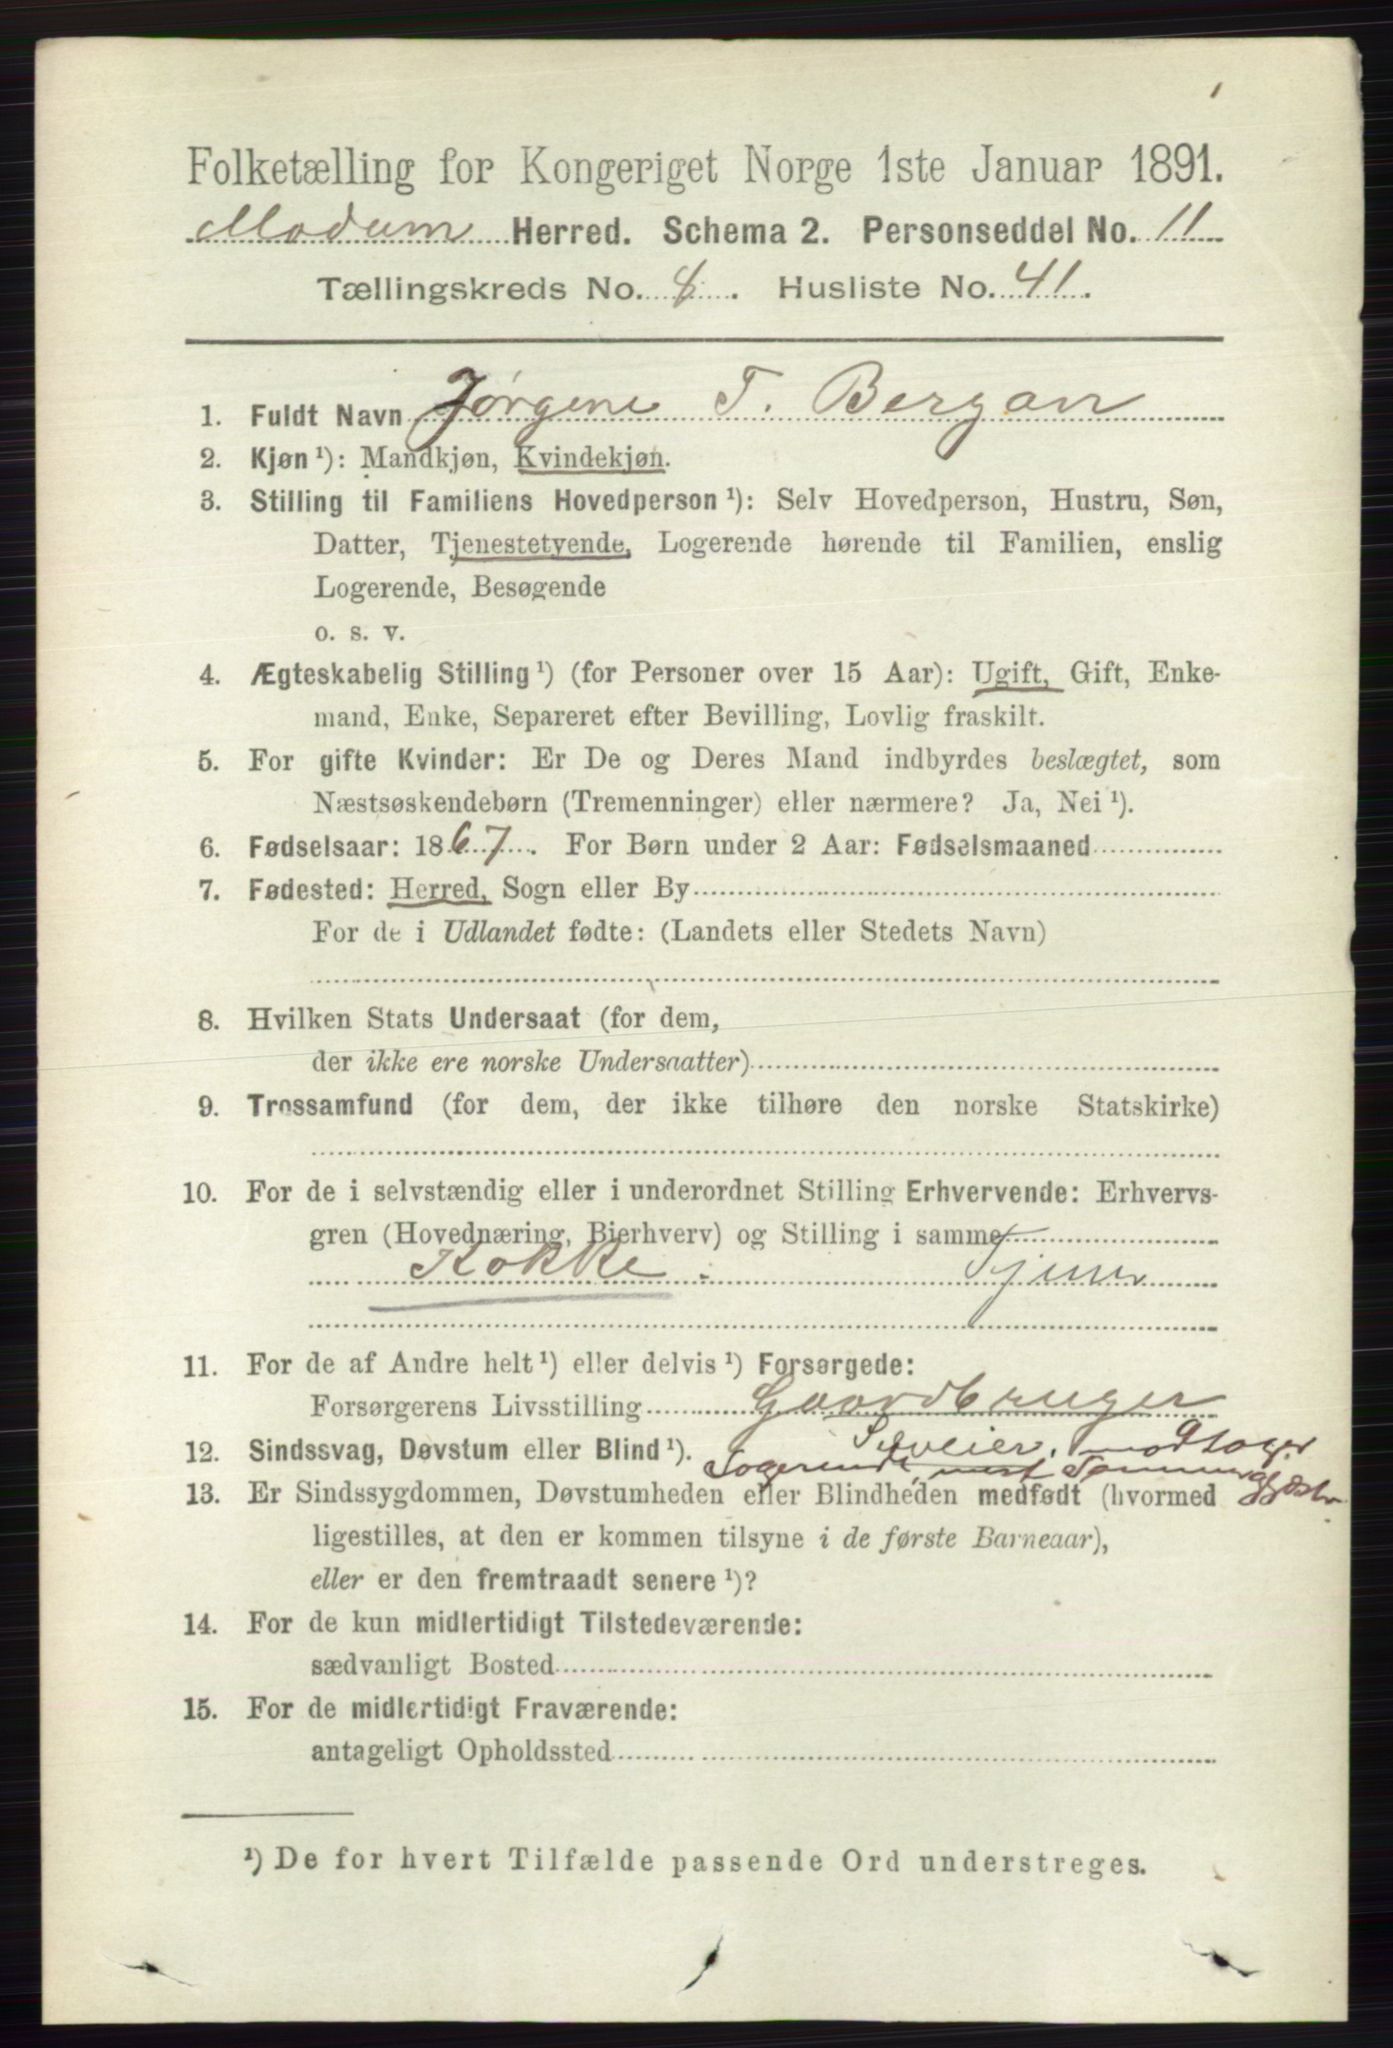 Folketælling for Kongeriget Norge 1ste Januar 1891.
Modum Herred. Schema 2. Personseddel No. 11
Tællingskreds No. 8. Husliste No. 41.
1. Fuldt Navn Jørgine T. Bergan
2. Kjøn ¹): Mandkjøn, Kvindekjøn.
3. Stilling til Familiens Hovedperson ¹): Selv Hovedperson, Hustru, Søn,
Datter, Tjenestetyende, Logerende hørende til Familien, enslig
Logerende, Besøgende
o. s. v.
4. Ægteskabelig Stilling ¹) (for Personer over 15 Aar): Ugift, Gift, Enke-
mand, Enke, Separeret efter Bevilling, Lovlig fraskilt.
5. For gifte Kvinder: Er De og Deres Mand indbyrdes beslægtet, som
Næstsøskendebørn (Tremenninger) eller nærmere? Ja, Nei ¹).
6. Fødselsaar: 1867. For Børn under 2 Aar: Fødselsmaaned
7. Fødested: Herred, Sogn eller By
For de i Udlandet fødte: (Landets eller Stedets Navn)
8. Hvilken Stats Undersaat (for dem,
der ikke ere norske Undersaatter)
9. Trossamfund (for dem, der ikke tilhøre den norske Statskirke)
10. For de i selvstændig eller i underordnet Stilling Erhvervende: Erhvervs-
gren (Hovednæring, Bierhverv) og Stilling i samme
Kokke.
11. For de af Andre helt ¹) eller delvis ¹) Forsørgede:
Forsørgerens Livsstilling Gaardbruger
Selveier, modtager
12. Sindssvag, Døvstum eller Blind ¹).
Logerende, mest Sommergjæster
13. Er Sindssygdommen, Døvstumheden eller Blindheden medfødt (hvormed
ligestilles, at den er kommen tilsyne i de første Barneaar),
eller er den fremtraadt senere ¹)?
14. For de kun midlertidigt Tilstedeværende:
sædvanligt Bosted
15. For de midlertidigt Fraværende:
antageligt Opholdssted
¹) De for hvert Tilfælde passende Ord understreges.